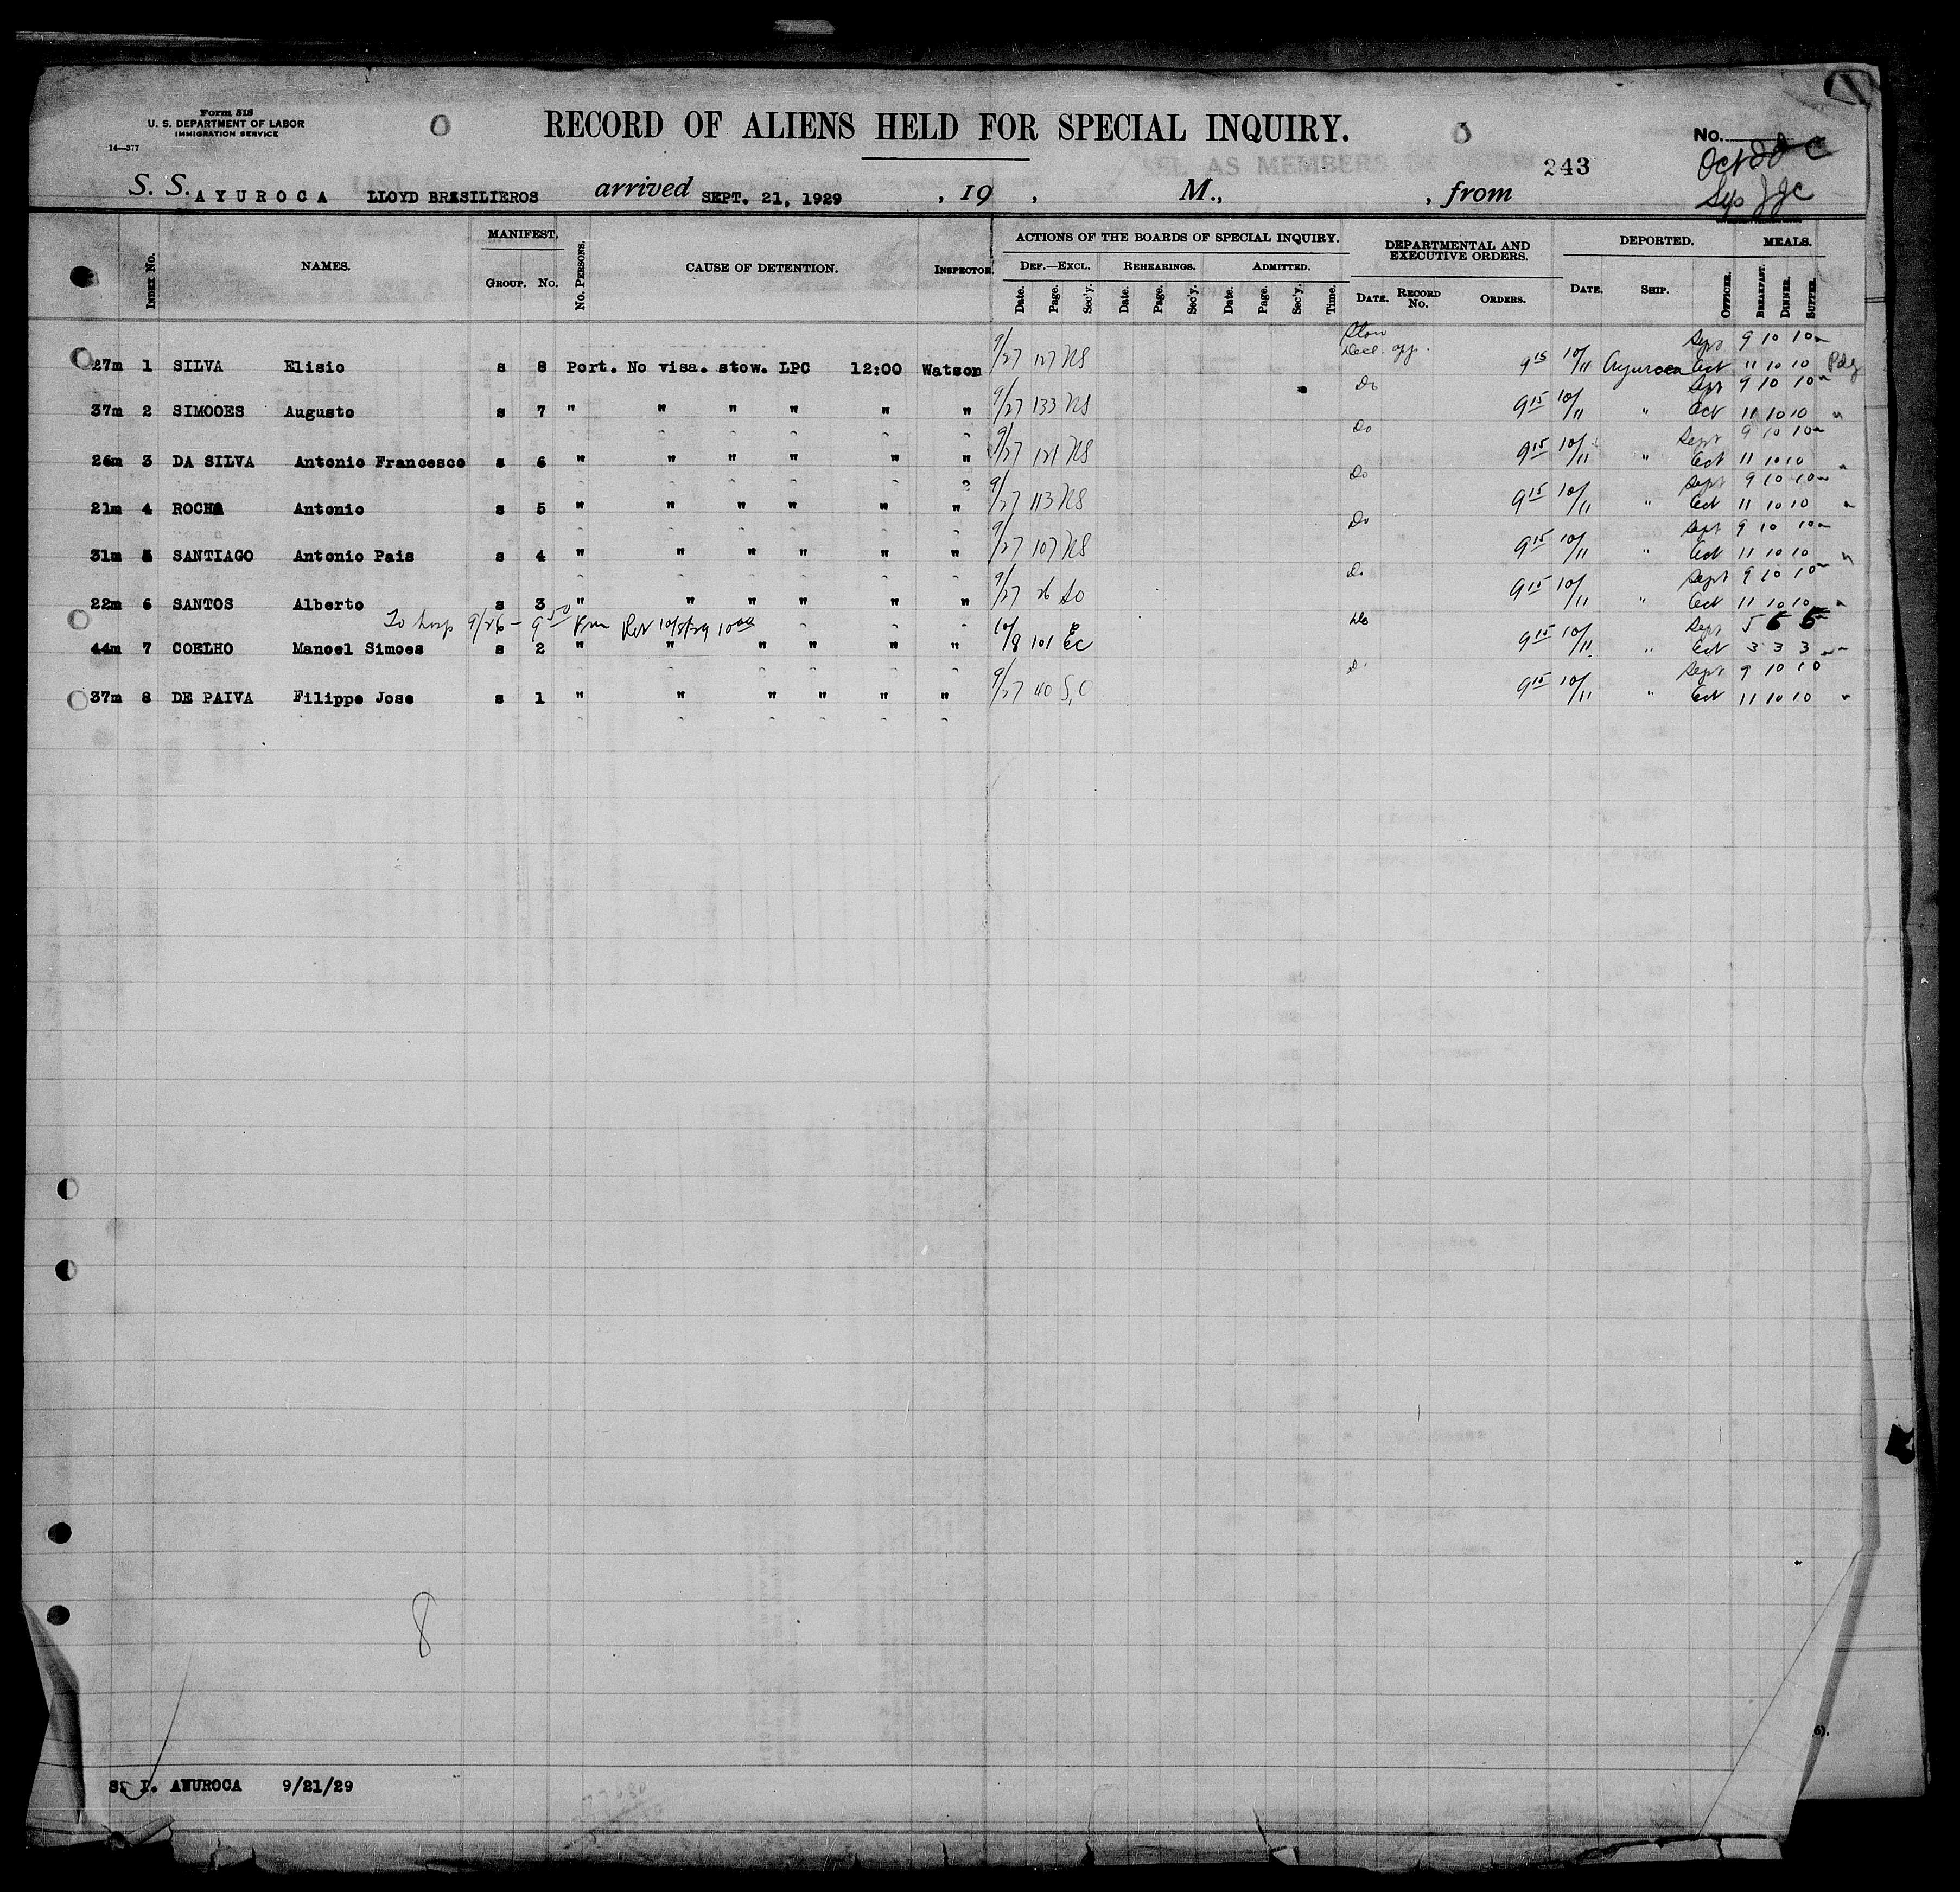 Form 518
U. S. DEPARTMENT OF LABOR
IMMIGRATION SERVICE
14—377
RECORD OF ALIENS HELD FOR SPECIAL INQUIRY.
No.
243
S. S. AYUROCA LLOYD BRASILIEROS arrived SEPT. 21, 1929 , 19 , M., , from
Index No. NAMES. MANIFEST. Group. No. No. Persons. CAUSE OF DETENTION. Inspector. ACTIONS OF THE BOARDS OF SPECIAL INQUIRY. Def.—Excl. Date. Page. Sec'y. Rehearings. Date. Page. Sec'y. Admitted. Date. Page. Sec'y. Time. DEPARTMENTAL AND EXECUTIVE ORDERS. Date. Record No. Orders. DEPORTED. Date. Ship. Officer. MEALS. Breakfast. Dinner. Supper.
Sept 9 10 10
27m 1 SILVA Elisio s 8 Port. No visa. stow. LPC 12:00 Watson 9/27 127 NS Decl. app. 9 15 10/11 Ayuroca Oct 11 10 10
Do Sept 9 10 10
37m 2 SIMOOES Augusto s 7 " " " " " " 9/27 133 NS 9 15 10/11 " Oct 11 10 10 "
Do Sept 9 10 10
26m 3 DA SILVA Antonio Francesco s 6 " " " " " " 9/27 121 NS 9 15 10/11 " Oct 11 10 10 "
Do Sept 9 10 10
21m 4 ROCHA Antonio s 5 " " " " " " 9/27 113 NS 9 15 10/11 " Oct 11 10 10 "
Do Sept 9 10 10
31m 5 SANTIAGO Antonio Pais s 4 " " " " " " 9/27 107 NS 9 15 10/11 " Oct 11 10 10 "
Do Sept 9 10 10
22m 6 SANTOS Alberto s 3 " " " " " " 9/27 26 9 15 10/11 " Oct 11 10 10 "
To hosp 9/26 - 9 50 Pm Ret 10/8/29 10 00 Do Sept 5 6 5
44m 7 COELHO Manoel Simoes s 2 " " " " " " 10/8 101 EC 9 15 10/11 " Oct 3 3 3
Do Sept 9 10 10
37m 8 DE PAIVA Filippe Jose s 1 " " " " " " 9/27 40 9 15 10/11 " Oct 11 10 10 "
8
S. I. AYUROCA 9/21/29